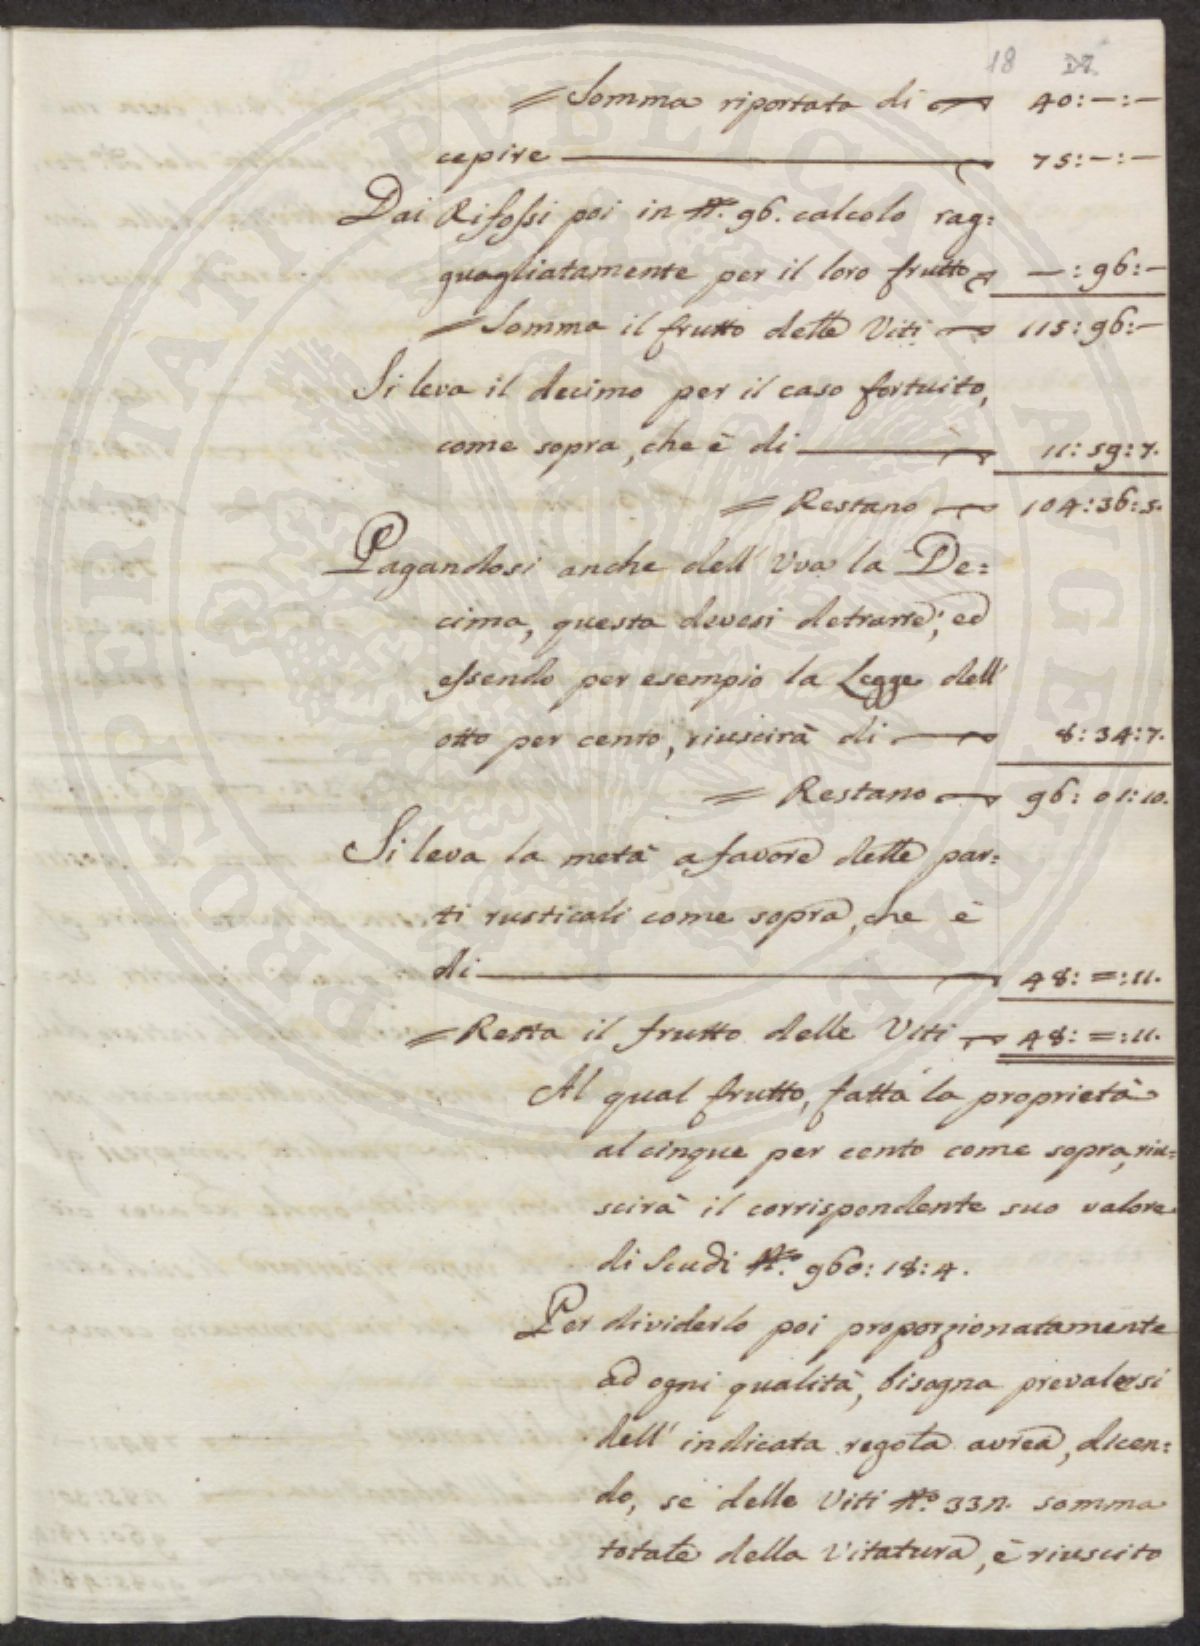 18 D7.
= Somma riportata di 40:—:—
cepire 75:—:—
Dai Rifossi poi in N.º 96. calcolo rag:
guagliatamente per il loro frutto —:96:—
= Somma il frutto delle Viti 115:96:—
Si leva il decimo per il caso fortuito,
come sopra, che è di 11:59:7.
= Restano 104:36:5.
Pagandosi anche dell' Uva la De:
cima, questa devesi detrarre; ed
essendo per esempio la Legge dell'
otto per cento, riuscirà di 8:34:7.
= Restano 96:01:10.
Si leva la metà a favore delle par:
ti rusticali come sopra, che è
di 48:=:11.
= Resta il frutto delle Viti 48:=:11.
Al qual frutto, fatta la proprietà
al cinque per cento come sopra, riu:
scirà il corrispondente suo valore
di Scudi N.º 960:18:4.
Per dividerlo poi proporzionatamente
ad ogni qualità, bisogna prevalersi
dell' indicata regola aurea, dicen:
do, se delle Viti N.º 332. somma
totale della Vitatura, è riuscito
PROSPERITATI PUBLICAE AUGENDAE